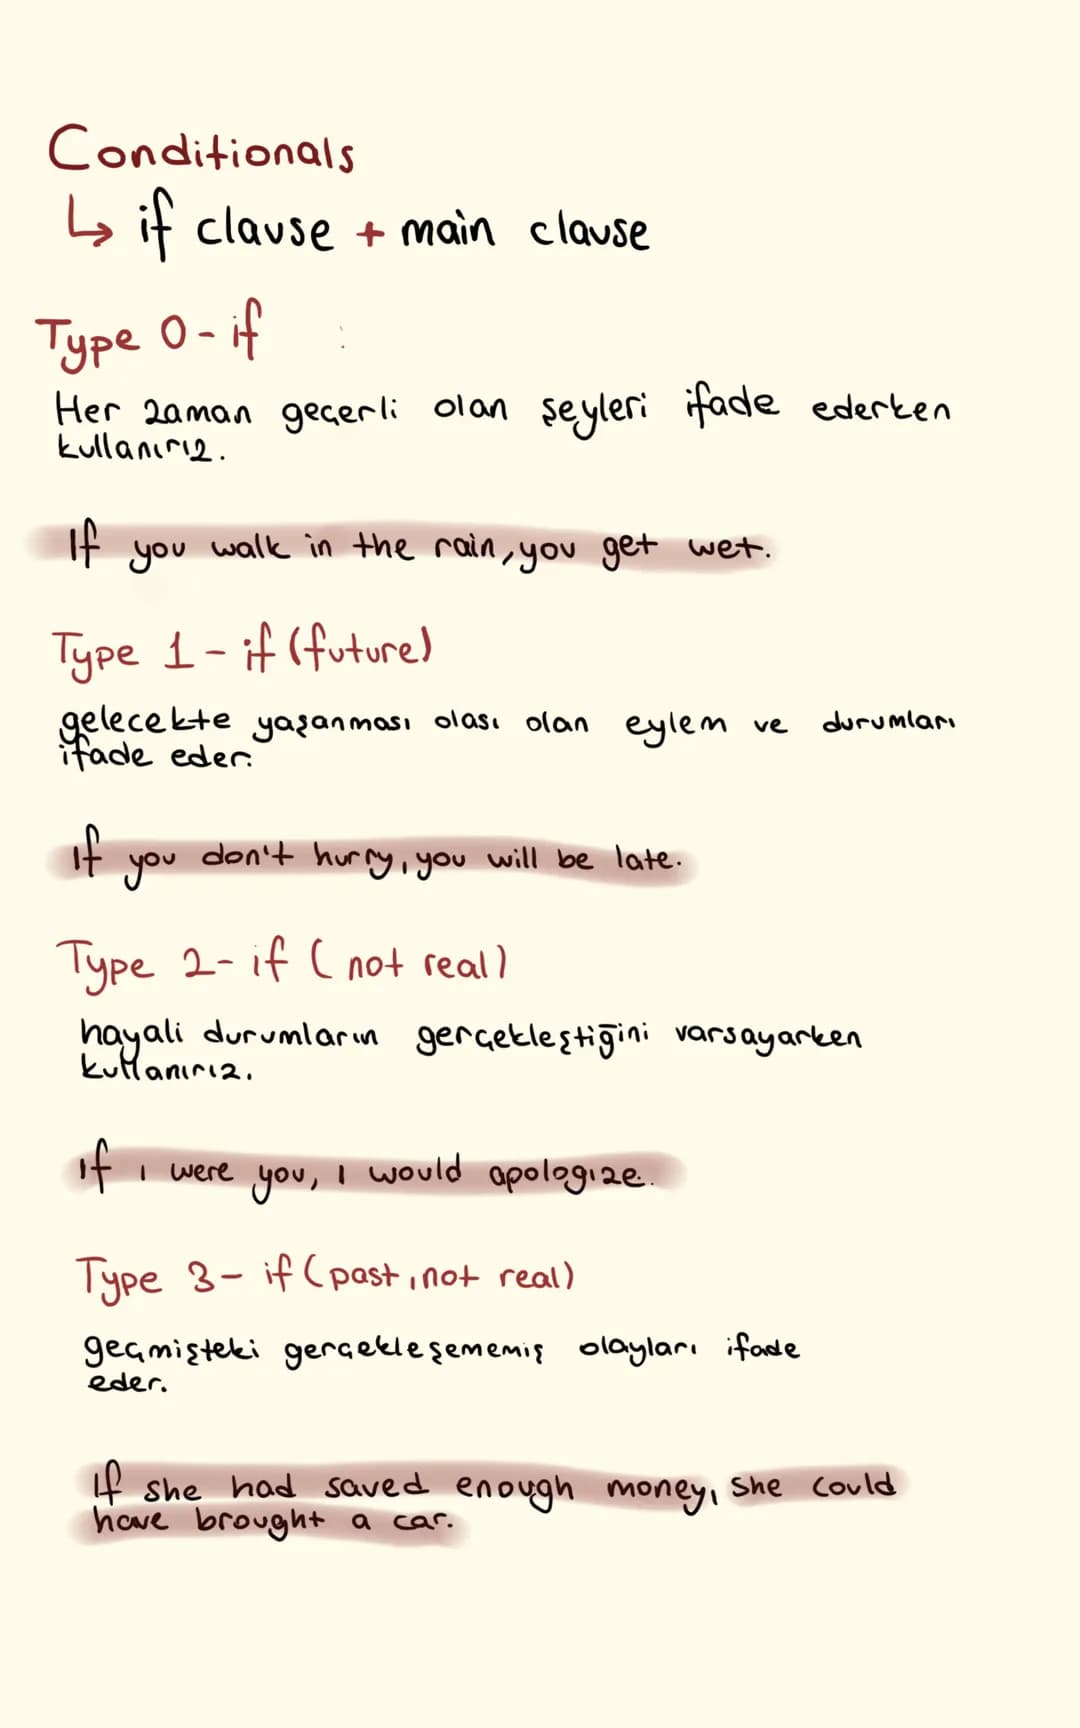 Conditionals
↳ if clause + main clause
Type 0 - if :
Her zaman geçerli olan şeyleri ifade ederken
kullanırız.
If you walk in the rain, you get wet.
Type 1 - if (future)
gelecekte yaşanması olası olan eylem ve durumları
ifade eder.
If you don't hurry, you will be late.
Type 2 - if (not real)
hayali durumların gerçekleştiğini varsayarken
kullanırız.
If ı were you, ı would apologıze.
Type 3 - if (past, not real)
geçmişteki gerçekleşememiş olayları ifade
eder.
If she had saved enough money, she could
have brought a car.